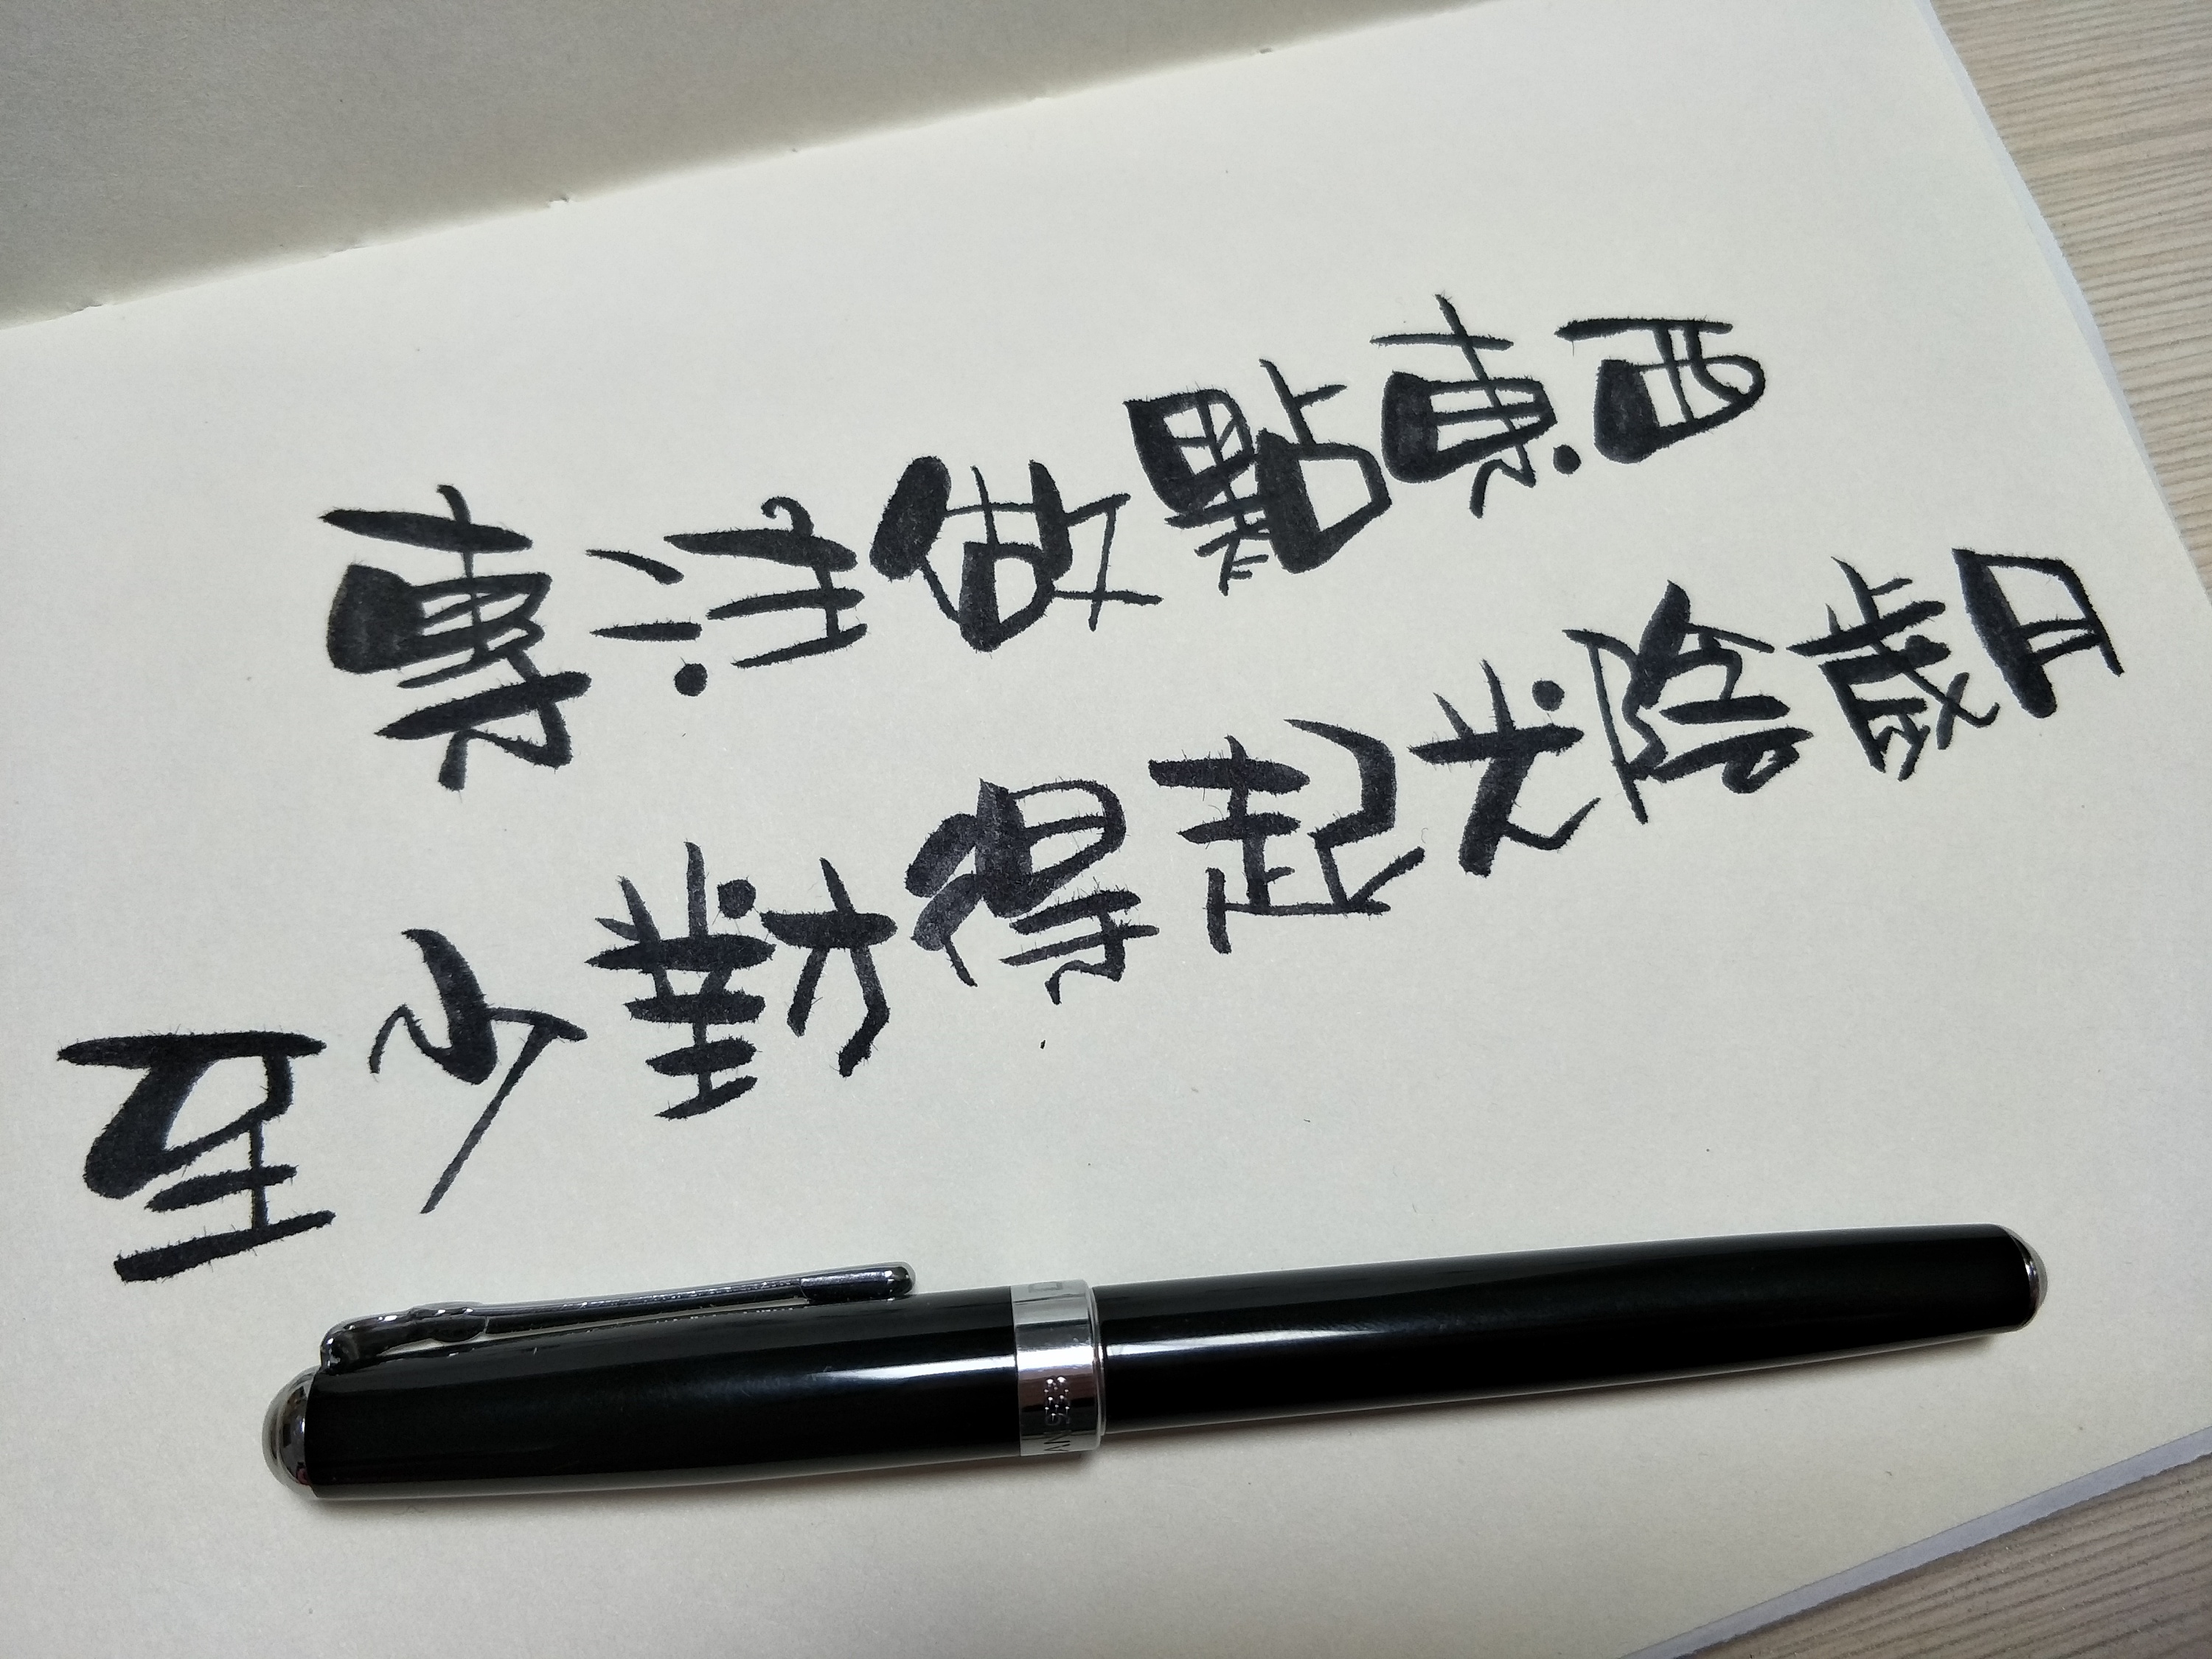 專注做點東西
至少對得起光陰歲月